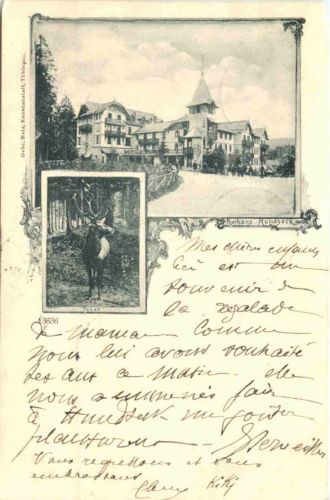 Gebr. Metz, Kunstanstalt, Tübingen.
Kurhaus Hundseck
3636
Mes chers enfants
Ici est un
souvenir de
la régalade
de maman Comme
nous lui avons souhaité
ses ans ce matin. elle
nous a emmenés faire
à Hundseck un goûter
Vous regrettons et vous
embrassons
Kiki